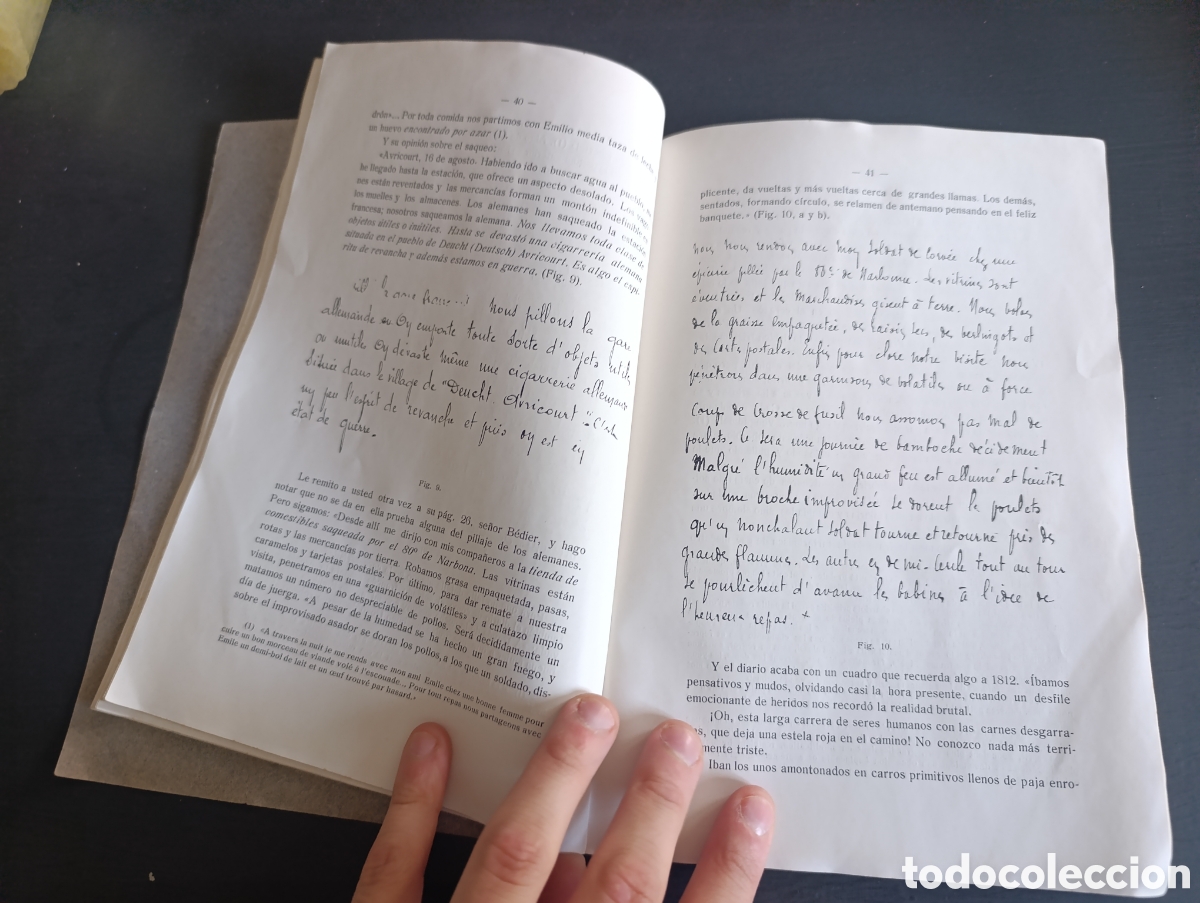 — 40 —
drón»... Por toda comida nos partimos con Emilio media taza de leche
un huevo encontrado por azar (1).
Y su opinión sobre el saqueo:
«Avricourt, 16 de agosto. Habiendo ido a buscar agua al pueblo,
he llegado hasta la estación, que ofrece un aspecto desolado. Los
nes están reventados y las mercancías forman un montón indefinible
los muelles y los almacenes. Los alemanes han saqueado la estación
francesa; nosotros saqueamos la alemana. Nos llevamos toda clase de
objetos útiles o inútiles. Hasta se devastó una cigarrería alemana
situada en el pueblo de Deucht (Deutsch) Avricourt. Es algo el espí-
ritu de revancha y además estamos en guerra. (Fig. 9).
Nous pillons la gare
allemande on emporte toute sorte d'objets utiles
ou inutiles On dévaste même une cigarrerie allemande
située dans le village de "Deucht Avricourt". C'est
un peu l'esprit de revanche et puis on est en
état de guerre.
Fig. 9.
Le remito a usted otra vez a su pág. 26, señor Bédier, y hago
notar que no se da en ella prueba alguna del pillaje de los alemanes.
Pero sigamos: «Desde allí me dirijo con mis compañeros a la tienda de
comestibles saqueada por el 80º de Narbona. Las vitrinas están
rotas y las mercancías por tierra. Robamos grasa empaquetada, pasas,
caramelos y tarjetas postales. Por último, para dar remate a nuestra
visita, penetramos en una «guarnición de volátiles» y a culatazo limpio
matamos un número no despreciable de pollos. Será decididamente un
día de juerga. «A pesar de la humedad se ha hecho un gran fuego, y
sobre el improvisado asador se doran los pollos, a los que un soldado, dis-
(1) «A travers la nuit je me rends avec mon ami Emile chez une bonne femme pour
cuire un bon morceau de viande volé à l'escouade... Pour tout repas nous partageons avec
Emile un demi-bol de lait et un œuf trouvé par hasard.»
— 41 —
plicente, da vueltas y más vueltas cerca de grandes llamas. Los demás,
sentados, formando círculo, se relamen de antemano pensando en el feliz
banquete.» (Fig. 10, a y b).
nous nous rendons avec mon soldat de corvée chez une
epicerie pillée par le 80e de Narbonne. Les vitrines sont
éventrées et les marchandises gisent à terre. Nous volons
de la graisse empaquetée, des raisins secs, de berlingots et
des cartes postales. Enfin pour clore notre visite nous
pénétrons dans une garnison de volatils ou à force
coup de crosse de fusil nous assomons pas mal de
poulets. Ce sera une journée de bamboche décidement
Malgré l'humidité un grand feu est allumé et bientot
sur une broche improvisée se dorent les poulets
qu'un nonchalant soldat tourne et retourne près des
grandes flammes. Les autres en demi-cercle tout autour
se pourlèchent d'avance les babines à l'idée de
l'heureux repas.
Fig. 10.
Y el diario acaba con un cuadro que recuerda algo a 1812. «Íbamos
pensativos y mudos, olvidando casi la hora presente, cuando un desfile
emocionante de heridos nos recordó la realidad brutal.
¡Oh, esta larga carrera de seres humanos con las carnes desgarra-
as, que deja una estela roja en el camino! No conozco nada más terri-
mente triste.
Iban los unos amontonados en carros primitivos llenos de paja enro-
todocoleccion